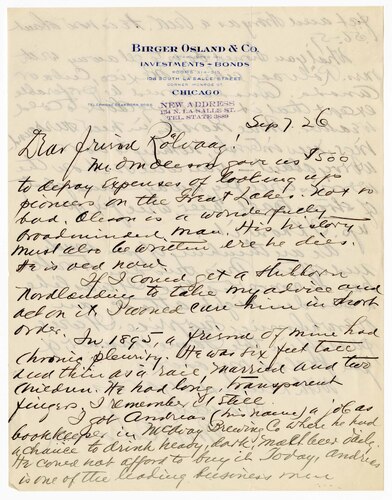 BIRGER OSLAND & CO.
INVESTMENTS - BONDS
108 SOUTH LA SALLE STREET
CHICAGO
NEW ADDRESS
134 N. LA SALLE ST.
TEL. STATE 3889
Sep 7. 26
Dear friend Rölvaag!
Mr O M Oleson gave us $500
to defray expenses of looking up
pioneers on the Great Lakes. Not so
bad. Oleson is a wonderfully
broadminded man. His history
must also be written ere he dies.
He is old now.
If I could get a stubborn
Nordlanding to take my advice and
act on it, I would cure him in short
order.
In 1895, a friend of mine had
chronic pleurisy. He was six feet tall
and thin as a rail, married and two
children. He had long, transparent
fingers, I remember it still.
I got Andreas (his name) a job as
bookkeeper in McAvoy Brewing Co where he had
a chance to drink heavy, dark, malt beer daily.
He could not afford to buy it. Today, Andreas
is one of the leading business men